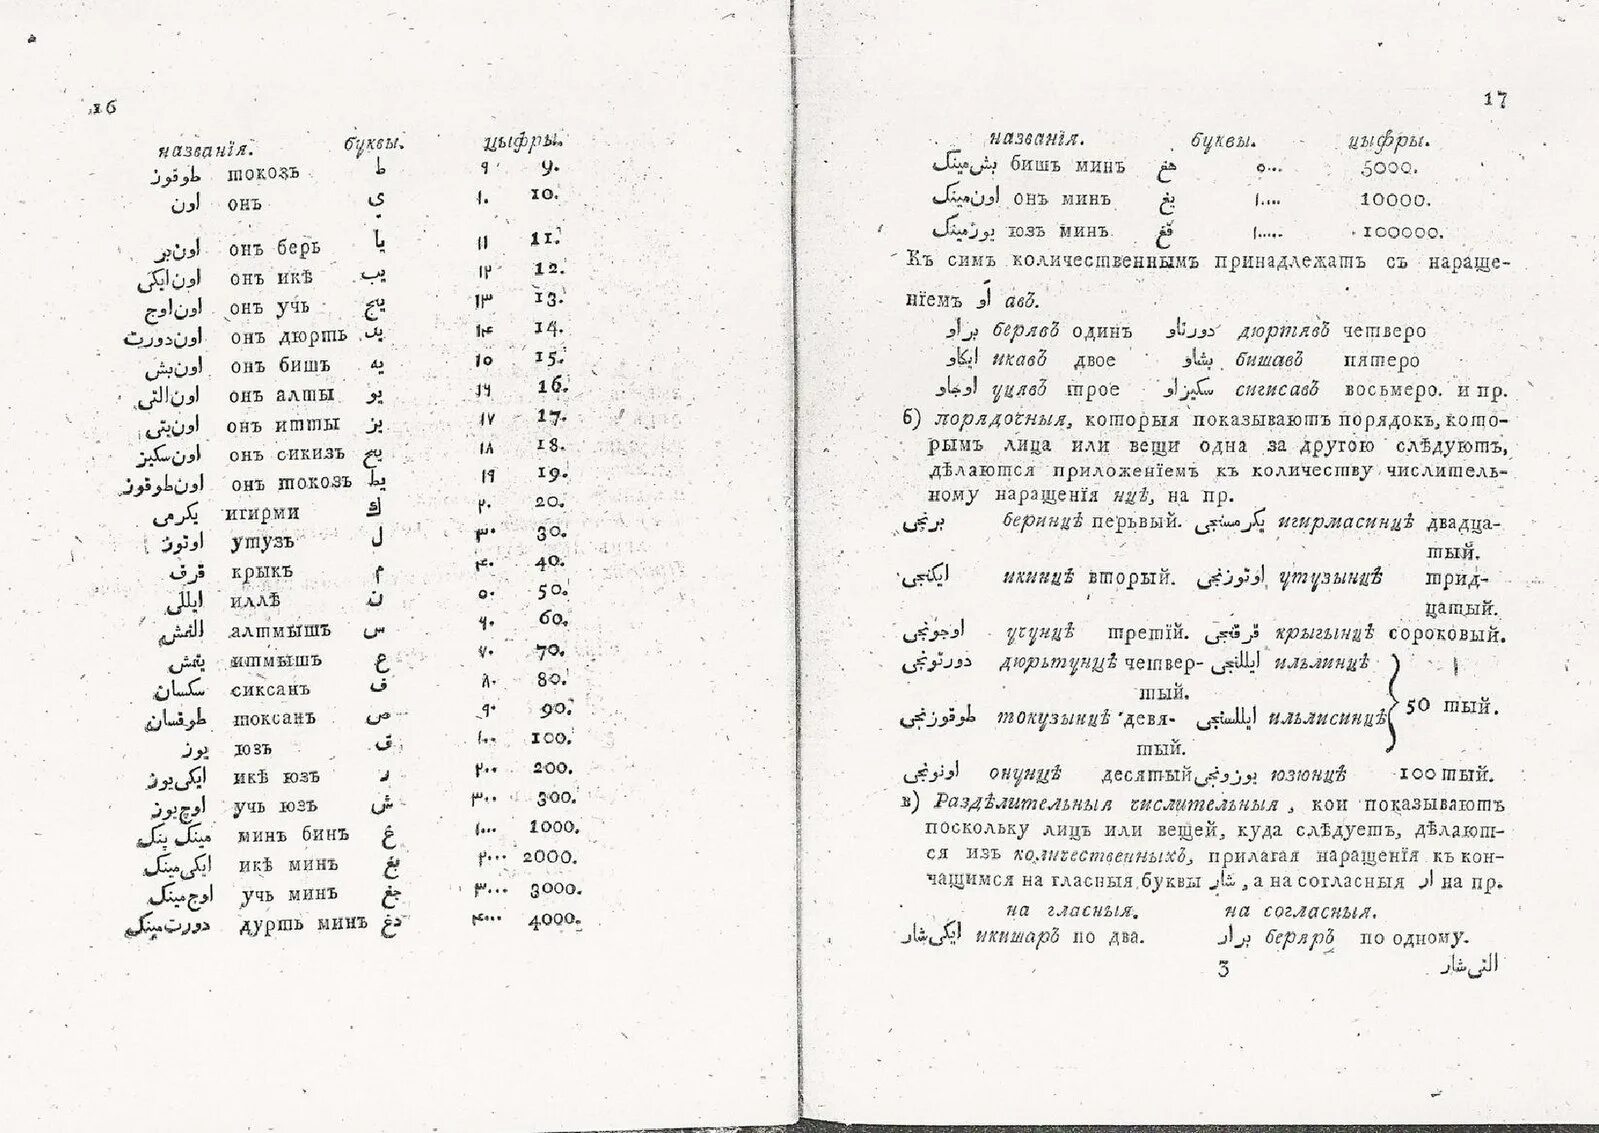 16
названїя. буквы. цыфры.
طوقوز токозъ ط ۹ 9.
اون онъ ی ۱۰ 10.
اون بر онъ беръ یا ۱۱ 11.
اون ایکی онъ икѣ یب ۱۲ 12.
اون اوچ онъ учь یج ۱۳ 13.
اون دورت онъ дюртъ ید ۱۴ 14.
اون بش онъ бишъ یه ۱۵ 15.
اون التی онъ алты یو ۱۶ 16.
اون یتی онъ итты یز ۱۷ 17.
اون سکیز онъ сикизъ یح ۱۸ 18.
اون طوقوز онъ токозъ یط ۱۹ 19.
یکرمی игирми ك ۲۰ 20.
اوتوز утузъ ل ۳۰ 30.
قرق крыкъ م ۴۰ 40.
ایللی иллѣ ن ۵۰ 50.
التمش алтмышъ س ۶۰ 60.
یتمش итмышъ ع ۷۰ 70.
سکسان сиксанъ ف ۸۰ 80.
طوقسان токсанъ ص ۹۰ 90.
یوز юзъ ق ۱۰۰ 100.
ایکی یوز икѣ юзъ ر ۲۰۰ 200.
اوچ یوز учь юзъ ش ۳۰۰ 300.
مینک بینک минъ бинъ غ ۱۰۰۰ 1000.
ایکی مینک икѣ минъ بغ ۲۰۰۰ 2000.
اوچ مینک учь минъ جغ ۳۰۰۰ 3000.
دورت مینک дуртъ минъ دغ ۴۰۰۰ 4000.
17
названїя. буквы. цыфры.
بش مینک бишъ минъ هغ ۵۰۰۰ 5000.
اون مینک онъ минъ یغ ۱۰۰۰۰ 10000.
یوز مینک юзъ минъ قغ ۱۰۰۰۰۰ 100000.
Къ симъ количественнымъ принадлежатъ съ нараще-
нїемъ اَو авъ.
براو берявъ одинъ دورتاو дюртявъ четверо
ایکاو икавъ двое بشاو бишавъ пятеро
اوچاو уцявъ трое سکیزاو сигисавъ восьмеро. и пр.
б) порядочныя, которыя показываютъ порядокъ, кото-
рымъ лица или вещи одна за другою слѣдуютъ,
дѣлаются приложенїемъ къ количеству числитель-
ному наращенїя нцѣ, на пр.
برنجی беринцѣ перьвый. یکرمسنجی игирмасинцѣ двадца-
тый.
ایکنجی икинцѣ вторый. اوتوزنجی утузынцѣ трид-
цатый.
اوچونجی учунцѣ третїй. قرقنجی крыгынцѣ сороковый.
دورتونجی дюрьтунцѣ четвер- ایللنجی ильлинцѣ
тый. 50 тый.
طوقوزنجی токузынцѣ девя- ایللسنجی ильлисинцѣ
тый.
اونونجی онунцѣ десятый یوزونجی юзюнцѣ 100 тый.
в) Раздѣлительныя числительныя, кои показываютъ
поскольку лицъ или вещей, куда слѣдуетъ, дѣлают-
ся изъ количественныхъ, прилагая наращенїя къ кон-
чащимся на гласныя буквы شار, а на согласныя ار на пр.
на гласныя. на согласныя.
ایکی شار икишаръ по два. برار беряръ по одному.
3 التی شار